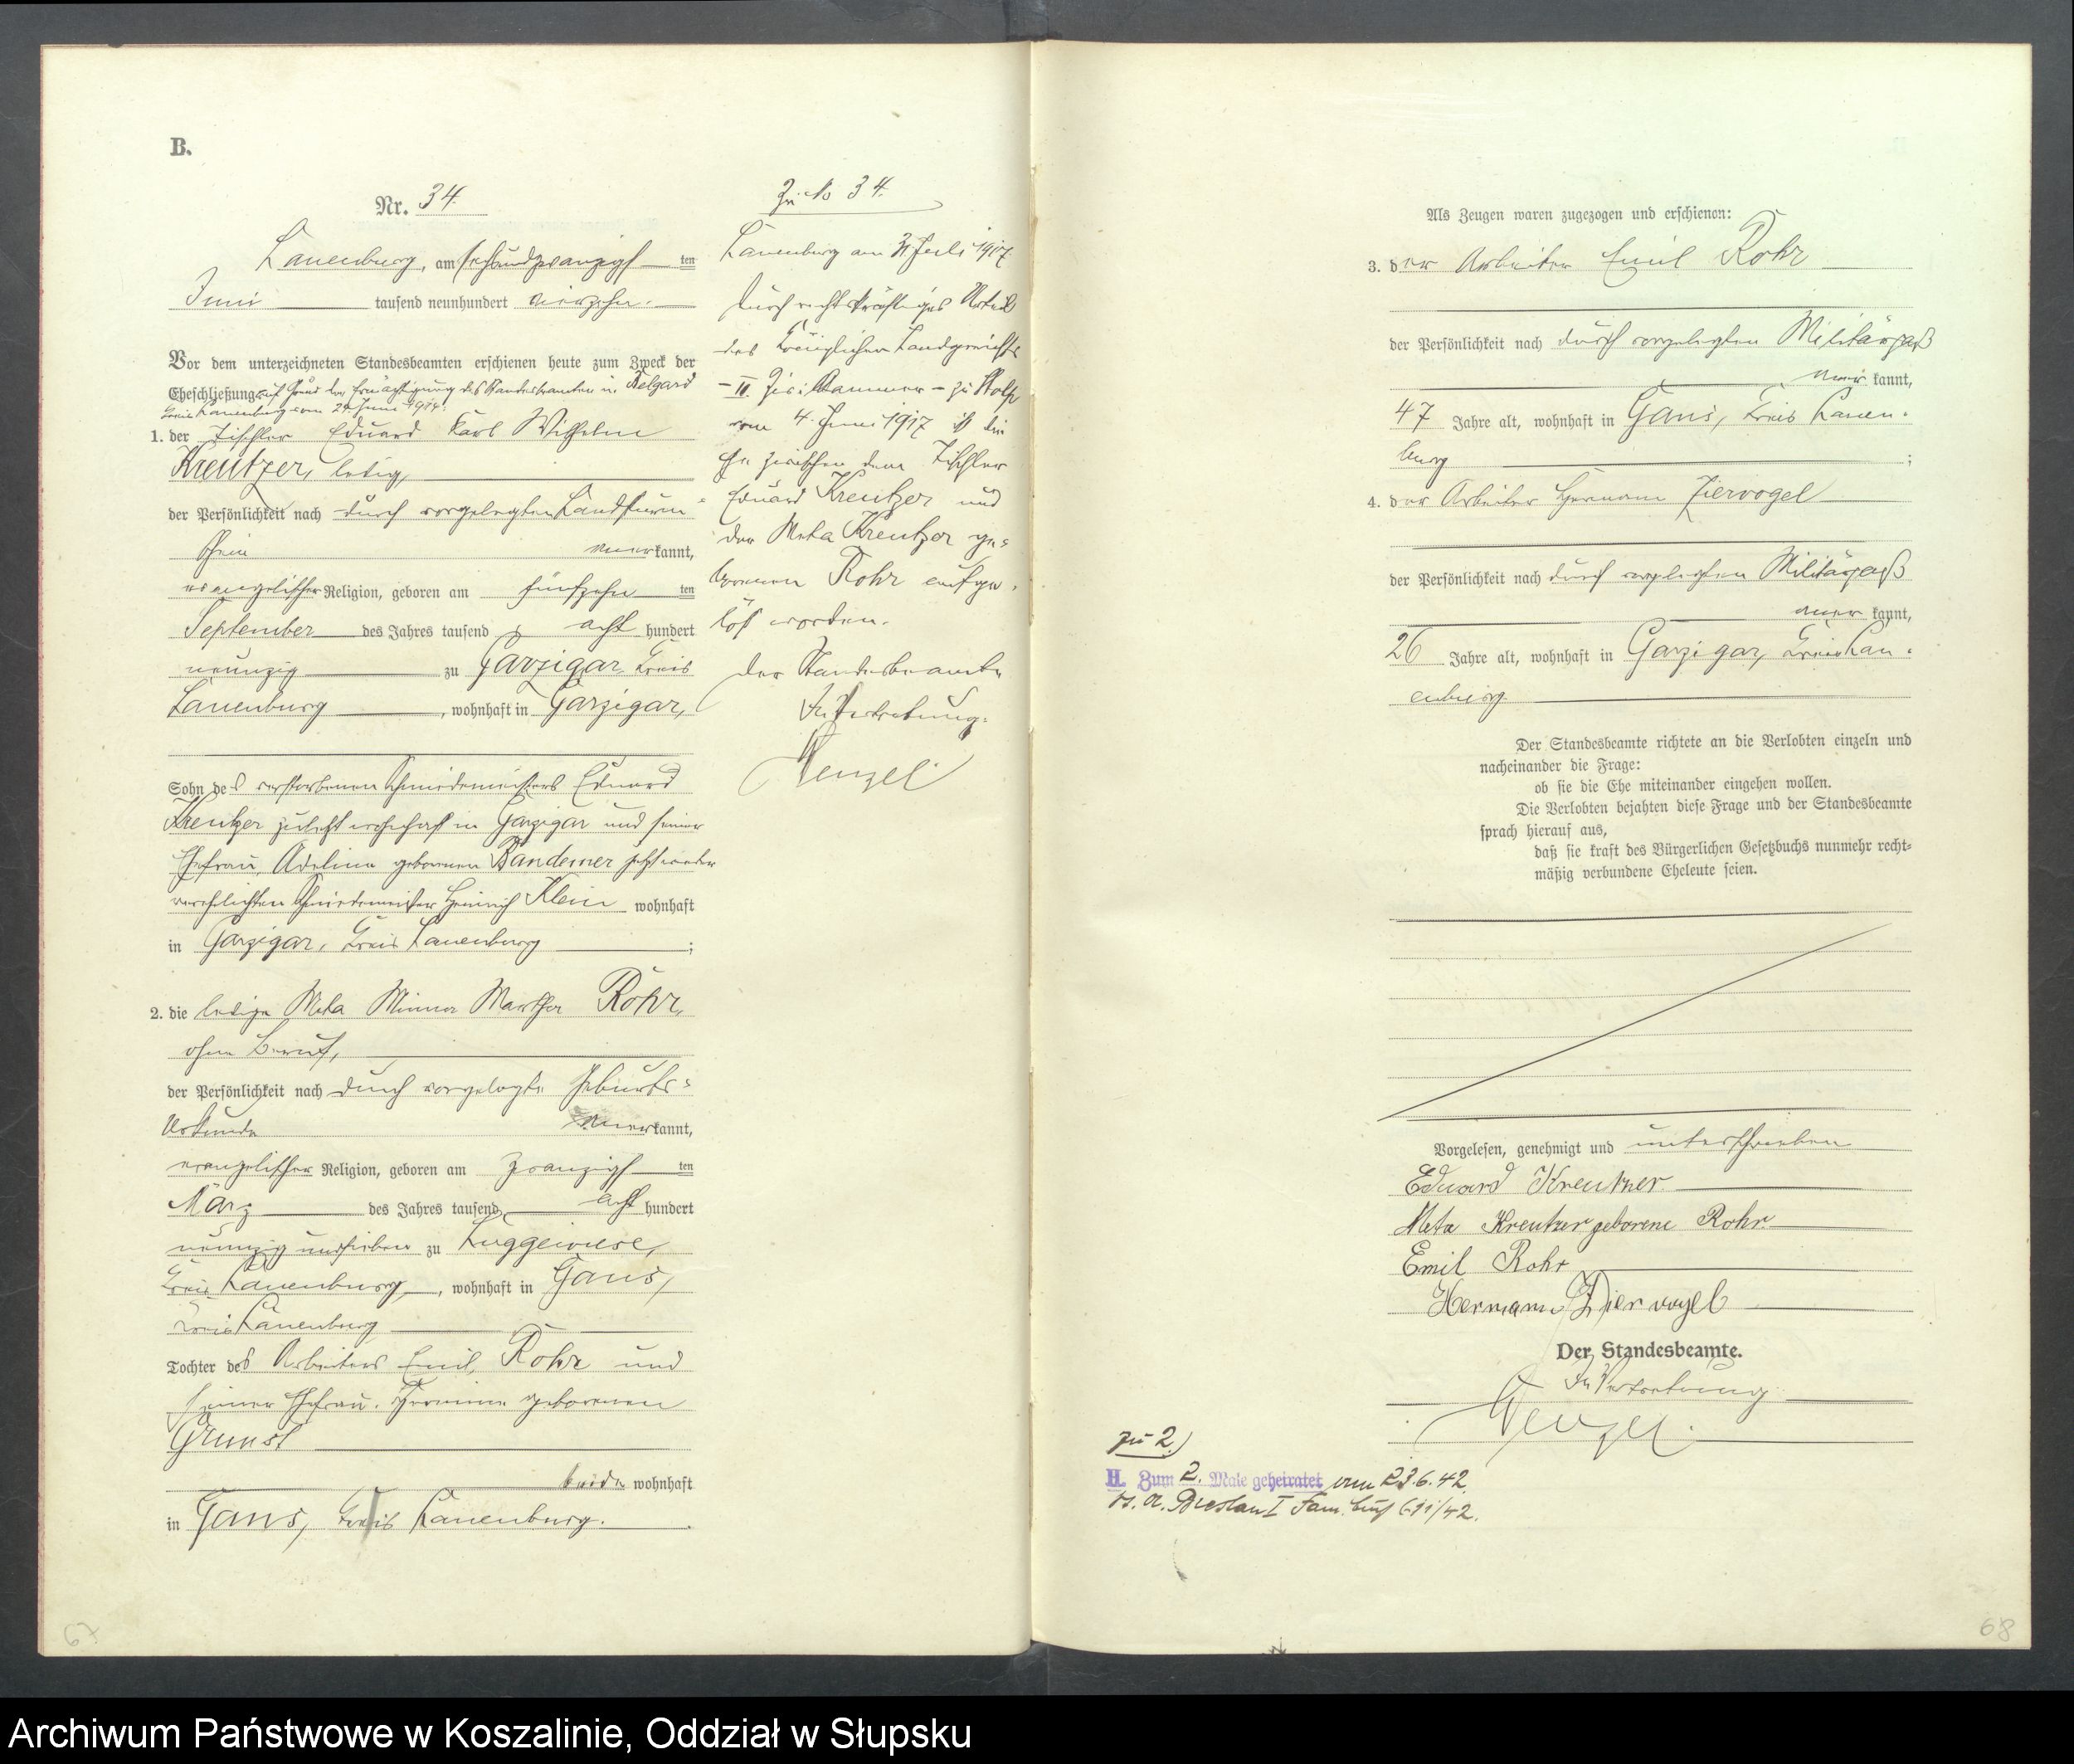 B.
Nr. 34.
Lauenburg, am sechsundzwanzigsten
Juni tausend neunhundert vierzehn.
Vor dem unterzeichneten Standesbeamten erschienen heute zum Zweck der
Eheschließung auf Grund der Ermächtigung des Standesbeamten in Belgard
Kreis Lauenburg vom 24. Juni 1914:
1. der Tischler Eduard Karl Wilhelm
Kreutzer, ledig,
der Persönlichkeit nach durch vorgelegten Landsturm
schein anerkannt,
evangelischer Religion, geboren am fünfzehnten
September des Jahres tausend acht hundert
neunzig zu Garzigar Kreis
Lauenburg, wohnhaft in Garzigar,
Sohn des verstorbenen Schmiedemeisters Eduard
Kreutzer zuletzt wohnhaft in Garzigar und seiner
Ehefrau, Adeline geborenen Bandemer jetzt wieder
verehelichten Schmiedemeister Heinrich Klein wohnhaft
in Garzigar, Kreis Lauenburg;
2. die ledige Meta Minna Martha Rohr,
ohne Beruf,
der Persönlichkeit nach durch vorgelegte Geburts-
Urkunde anerkannt,
evangelischer Religion, geboren am zwanzigsten
März des Jahres tausend acht hundert
neunzig und sieben zu Luggewiese,
Kreis Lauenburg, wohnhaft in Gans,
Kreis Lauenburg
Tochter des Arbeiters Emil Rohr und
seiner Ehefrau, Hermine geborenen
Grunst
beide wohnhaft
in Gans, Kreis Lauenburg.
Zu No 34.
Lauenburg am 31 Juli 1917.
Durch rechtskräftiges Urteil
des Königlichen Landgerichts
– II. Zivilkammer – zu Stolp
vom 4. Juni 1917 ist die
Ehe zwischen dem Tischler
Eduard Kreutzer und
der Meta Kreutzer ge-
borenen Rohr aufge-
löst worden.
Der Standesbeamte
In Vertretung:
Wenzel
67
Als Zeugen waren zugezogen und erschienen:
3. der Arbeiter Emil Rohr
der Persönlichkeit nach durch vorgelegten Militärpaß
anerkannt,
47 Jahre alt, wohnhaft in Gans, Kreis Lauen-
burg;
4. der Arbeiter Hermann Ziervogel
der Persönlichkeit nach durch vorgelegten Militärpaß
anerkannt,
26 Jahre alt, wohnhaft in Garzigar, Kreis Lau-
enburg
Der Standesbeamte richtete an die Verlobten einzeln und
nacheinander die Frage:
ob sie die Ehe miteinander eingehen wollen.
Die Verlobten bejahten diese Frage und der Standesbeamte
sprach hierauf aus,
daß sie kraft des Bürgerlichen Gesetzbuchs nunmehr recht-
mäßig verbundene Eheleute seien.
Vorgelesen, genehmigt und unterschrieben
Eduard Kreutzer
Meta Kreutzer geborene Rohr
Emil Rohr
Hermann Ziervogel
Der Standesbeamte.
In Vertretung
Wenzel.
zu 2.)
H. Zum 2. Male geheiratet am 23.6.42.
St. A. Breslau I Fam. buch 691/42.
68
Archiwum Państwowe w Koszalinie, Oddział w Słupsku